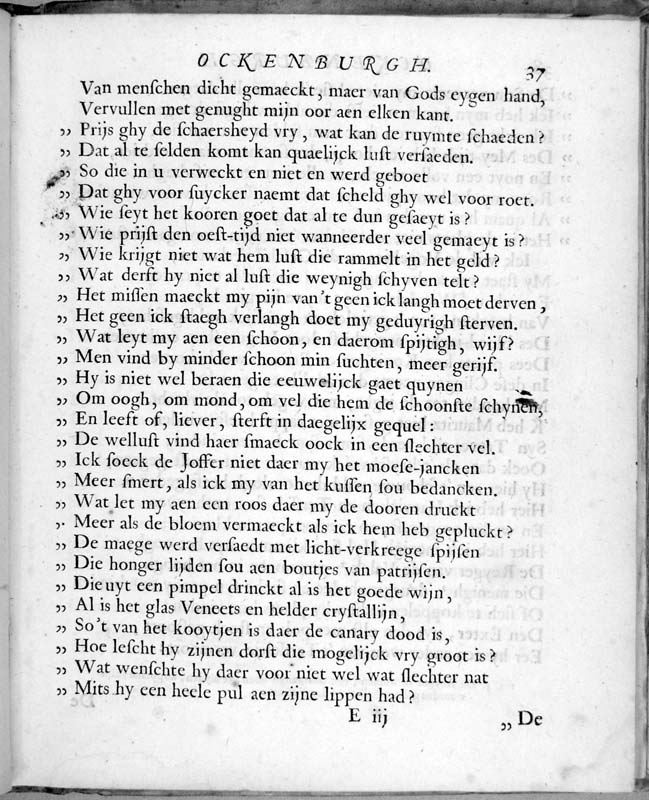 OCKENBURGH. 37
Van menſchen dicht gemaeckt, maer van Gods eygen hand,
Vervullen met genught mijn oor aen elken kant.
„ Prijs ghy de ſchaersheyd vry, wat kan de ruymte ſchaeden?
„ Dat al te ſelden komt kan quaelijck luſt verſaeden.
„ So die in u verweckt en niet en werd geboet
„ Dat ghy voor ſuycker naemt dat ſcheld ghy wel voor roet.
„ Wie ſeyt het kooren goet dat al te dun geſaeyt is?
„ Wie prijſt den oeſt-tijd niet wanneerder veel gemaeyt is?
„ Wie krijgt niet wat hem luſt die rammelt in het geld?
„ Wat derft hy niet al luſt die weynigh ſchyven telt?
„ Het miſſen maeckt my pijn van't geen ick langh moet derven,
„ Het geen ick ſtaegh verlangh doet my geduyrigh ſterven.
„ Wat leyt my aen een ſchoon, en daerom ſpijtigh, wijf?
„ Men vind by minder ſchoon min ſuchten, meer gerijf.
„ Hy is niet wel beraen die eeuwelijck gaet quynen
„ Om oogh, om mond, om vel die hem de ſchoonſte ſchynen,
„ En leeft of, liever, ſterft in daegelijx gequel:
„ De welluſt vind haer ſmaeck oock in een ſlechter vel.
„ Ick ſoeck de Joffer niet daer my het moeſe-jancken
„ Meer ſmert, als ick my van het kuſſen ſou bedancken.
„ Wat let my aen een roos daer my de dooren druckt
„ Meer als de bloem vermaeckt als ick hem heb gepluckt?
„ De maege werd verſaedt met licht-verkreege ſpijſen
„ Die honger lijden ſou aen boutjes van patrijſen.
„ Die uyt een pimpel drinckt al is het goede wijn,
„ Al is het glas Veneets en helder cryſtallijn,
„ So't van het kooytjen is daer de canary dood is,
„ Hoe leſcht hy zijnen dorſt die mogelijck vry groot is?
„ Wat wenſchte hy daer voor niet wel wat ſlechter nat
„ Mits hy een heele pul aen zijne lippen had?
E iij „ De